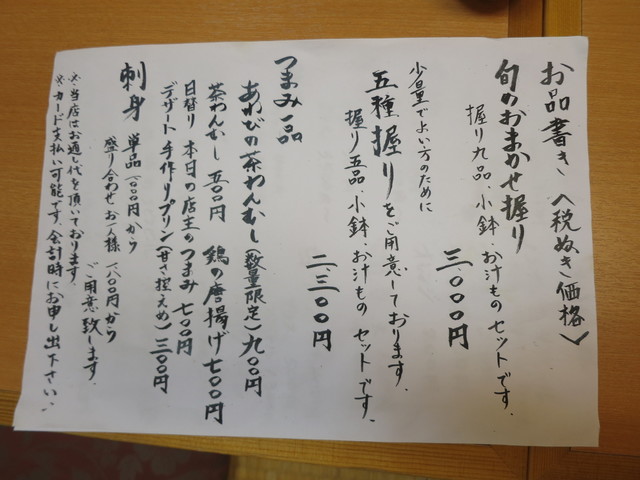 お品書き〈税ぬき価格〉
旬のおまかせ握り
握り九品、小鉢、お汁ものセットです。
三、〇〇〇円
少量でよい方のために
五種握りをご用意しております。
握り五品、小鉢、お汁ものセットです。
二、三〇〇円
つまみ一品
あわびの茶わんむし(数量限定)九〇〇円
茶わんむし 五〇〇円 鶏の唐揚げ 七〇〇円
日替り 本日の店主のつまみ 七〇〇円
デザート 手作りプリン(甘さ控えめ)三〇〇円
刺身 単品 八〇〇円から
盛り合わせ お一人様 一、八〇〇円から
ご用意致します。
※当店はお通し代を頂いております。
※カード支払い可能です。会計時にお申し出下さい。